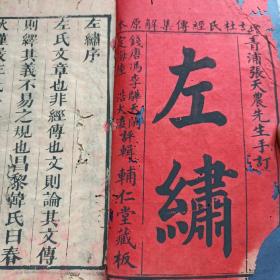 杜氏經傳集解原本
青浦張天農先生手訂
左繡
錢唐馮李驊天閑
定海陸浩大瀛
評輯
輔仁堂藏板
左繡序
左氏文章也非經傳也文則論其文傳
則繹其義不易之規也昌黎韓氏曰春
秋謹嚴左氏